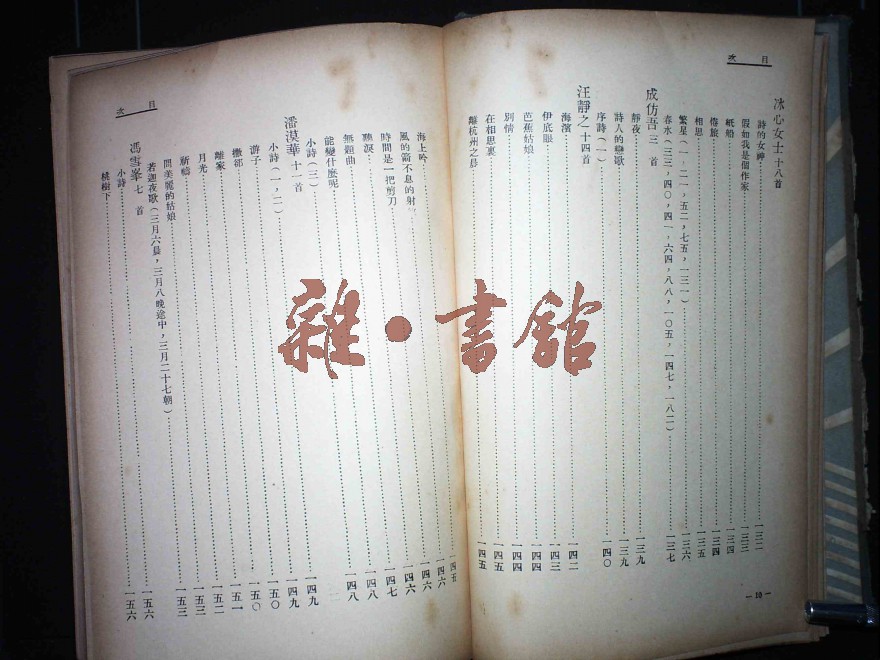 目次
冰心女士 十八首
詩的女神……一三二
假如我是個作家……一三三
紙船……一三四
倦旅……一三四
相思……一三五
繁星(一-二一,五二,七五,一三一)……一三六
春水(三三,四〇,四一,六四,八八,一〇五,一四七,一八二)……一三七
成仿吾 三首
靜夜……一三九
詩人的戀歌……一三九
序詩(一)……一四〇
汪靜之 十四首
海濱……一四二
伊底眼……一四三
芭蕉姑娘……一四四
別情……一四四
在相思裏……一四五
離杭州之晨……一四五
—10—
目次
海上吟……一四五
風的箭不息的射……一四六
時間是一把剪刀……一四六
聽淚……一四七
無題曲……一四八
能變什麼呢……一四八
小詩(三)……一四九
潘漠華 十一首
小詩(一,二)……一四九
游子……一五〇
撒鄉……一五〇
離家……一五一
月光……一五二
祈禱……一五三
問美麗的姑娘……一五三
若迦夜歌(三月六晨,三月八晚途中,三月二十七朝)
馮雪峯 七首
小詩……一五六
桃樹下……一五六
雜·書館